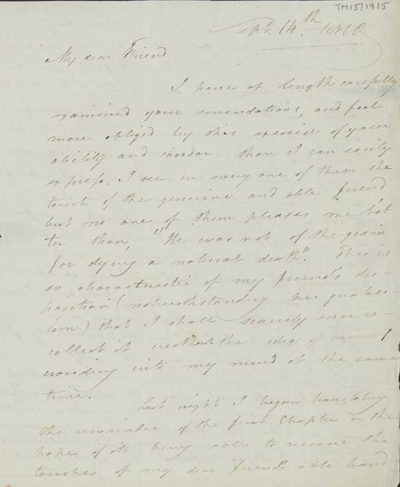 TM15/19/5
Sept. 14.th
My dear Friend
I have at length carefully
examined your emendations, and feel
more obliged by this exercise of your
ability and candor than I can easily
express. I see in every one of them the
touch of the genuine and able friend,
but no one of them pleases me bet
ter than, "He was not of the grain
for dying a natural death." This is
so characteristic of my friend's dis-
position (notwithstanding his quaker-
ism) that I shall scarcely ever re-
collect it without the idea of
into my mind at the same
time.
Last night I began
the remainder of the first Chapter in the
hope of its being able to receive the
touches of my dear friend's able hand